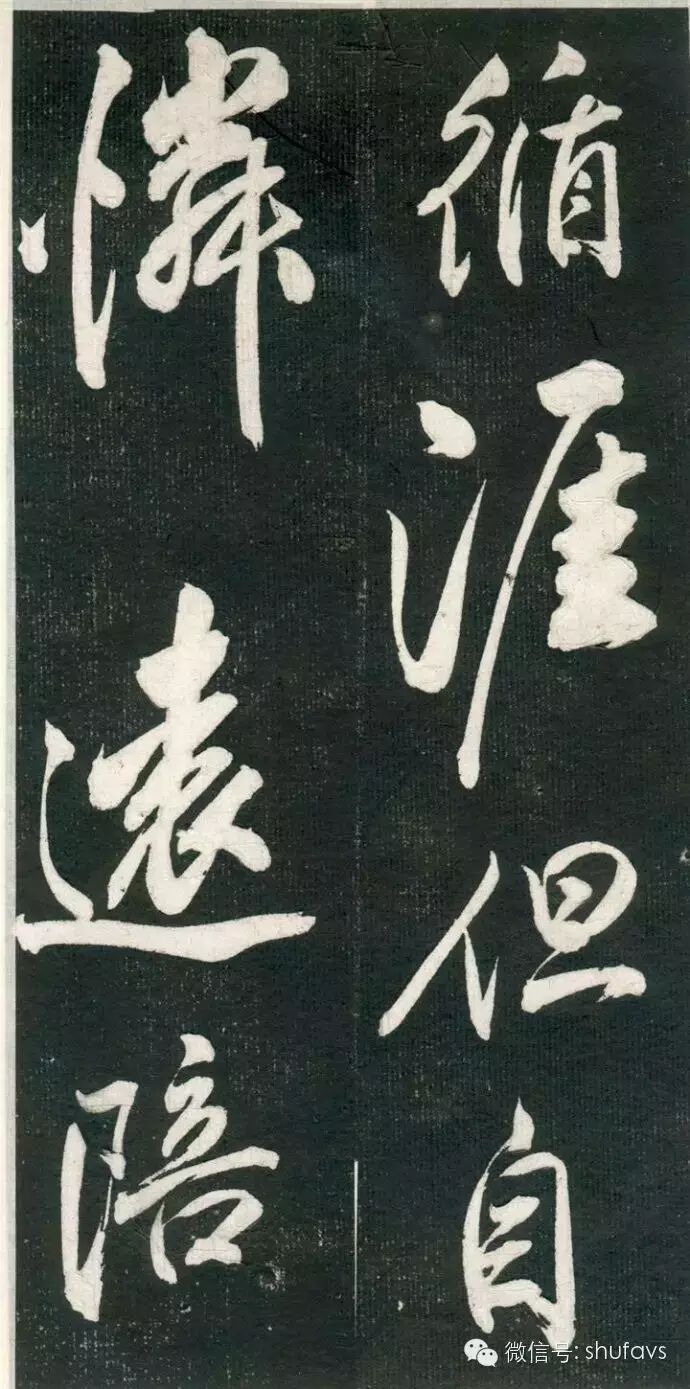 循涯但自
憐遠陪
微信号: shufavs